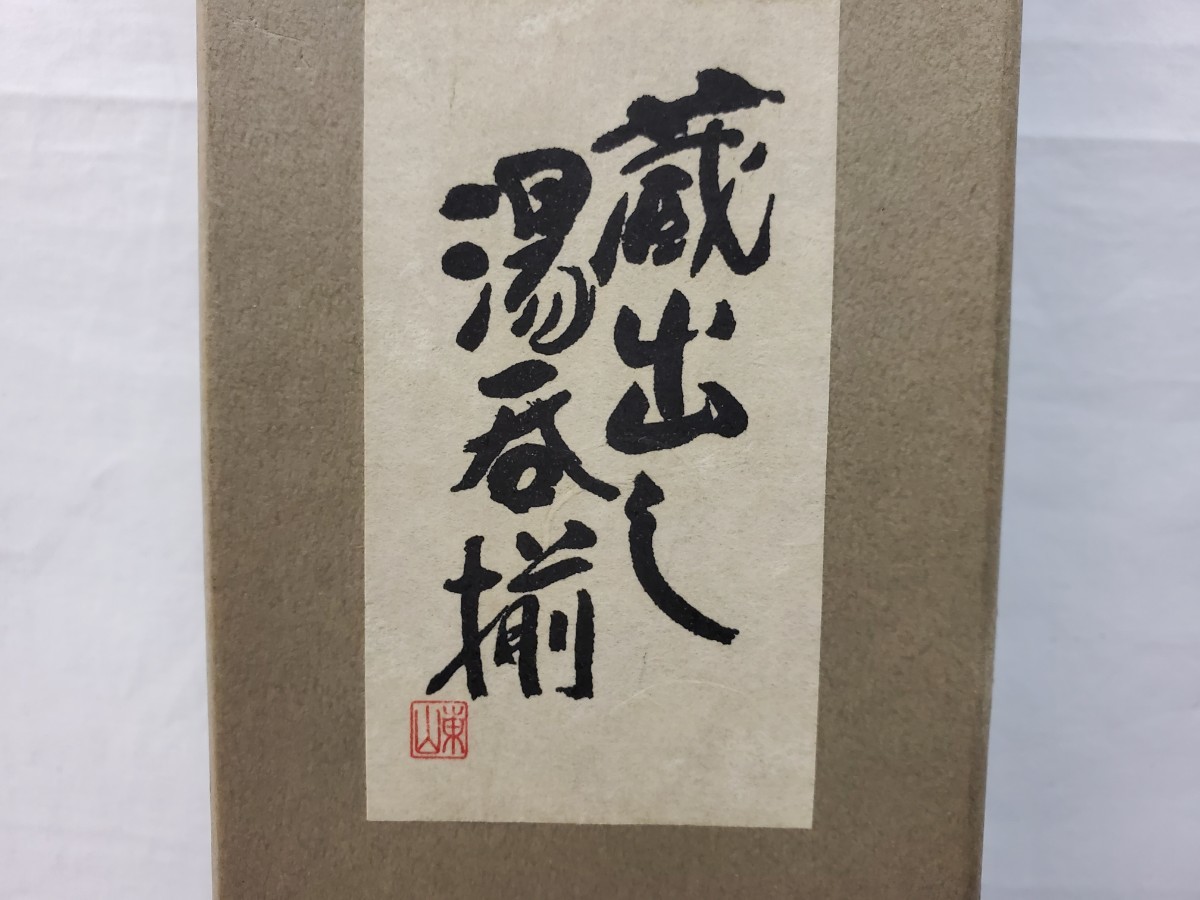 蔵出し
湯呑揃
東山